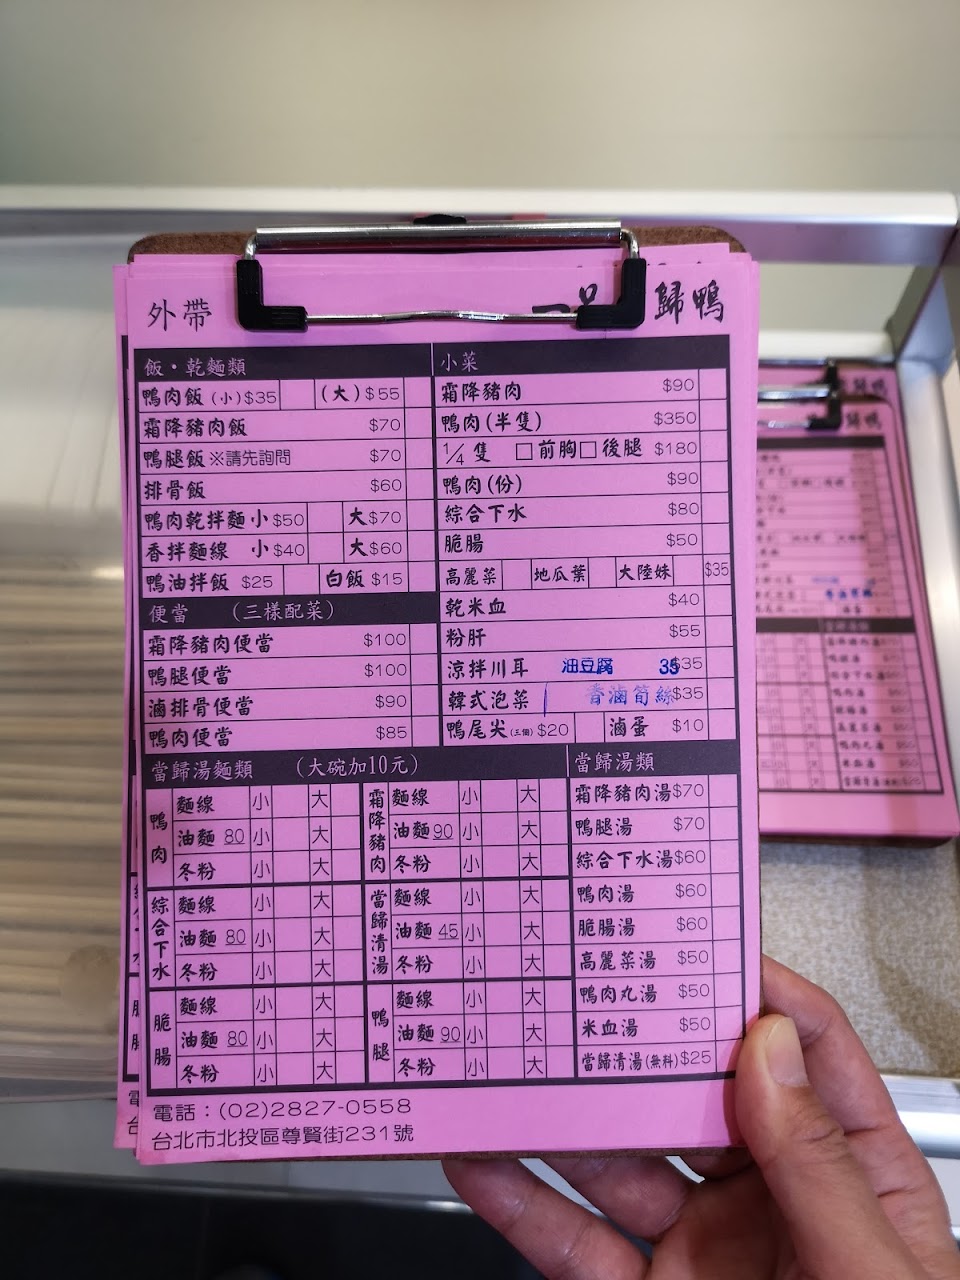 外帶
一品 歸鴨
飯・乾麵類
鴨肉飯(小)$35 (大)$55
霜降豬肉飯 $70
鴨腿飯※請先詢問 $70
排骨飯 $60
鴨肉乾拌麵 小$50 大$70
香拌麵線 小$40 大$60
鴨油拌飯 $25 白飯 $15
便當 (三樣配菜)
霜降豬肉便當 $100
鴨腿便當 $100
滷排骨便當 $90
鴨肉便當 $85
小菜
霜降豬肉 $90
鴨肉(半隻) $350
1/4 隻 □前胸□後腿 $180
鴨肉(份) $90
綜合下水 $80
脆腸 $50
高麗菜 地瓜葉 大陸妹 $35
乾米血 $40
粉肝 $55
涼拌川耳 油豆腐 35 $35
韓式泡菜 香滷筍絲 $35
鴨尾尖(三個) $20 滷蛋 $10
當歸湯麵類 (大碗加10元)
鴨肉
麵線 小 大
油麵 80 小 大
冬粉 小 大
霜降豬肉
麵線 小 大
油麵 90 小 大
冬粉 小 大
綜合下水
麵線 小 大
油麵 80 小 大
冬粉 小 大
當歸清湯
麵線 小 大
油麵 45 小 大
冬粉 小 大
脆腸
麵線 小 大
油麵 80 小 大
冬粉 小 大
鴨腿
麵線 小 大
油麵 90 小 大
冬粉 小 大
當歸湯類
霜降豬肉湯 $70
鴨腿湯 $70
綜合下水湯 $60
鴨肉湯 $60
脆腸湯 $60
高麗菜湯 $50
鴨肉丸湯 $50
米血湯 $50
當歸清湯(無料) $25
電話：(02)2827-0558
台北市北投區尊賢街231號